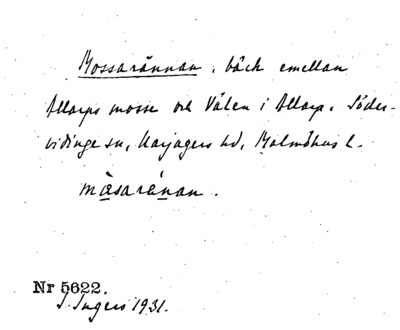 Mossarännan, bäck emellan
Allarps mosse och Välen i Allarp, Söder-
vidinge sn, Harjagers hd, Malmöhus l.
måsaränan.
Nr 5622.
I. Ingers 1931.